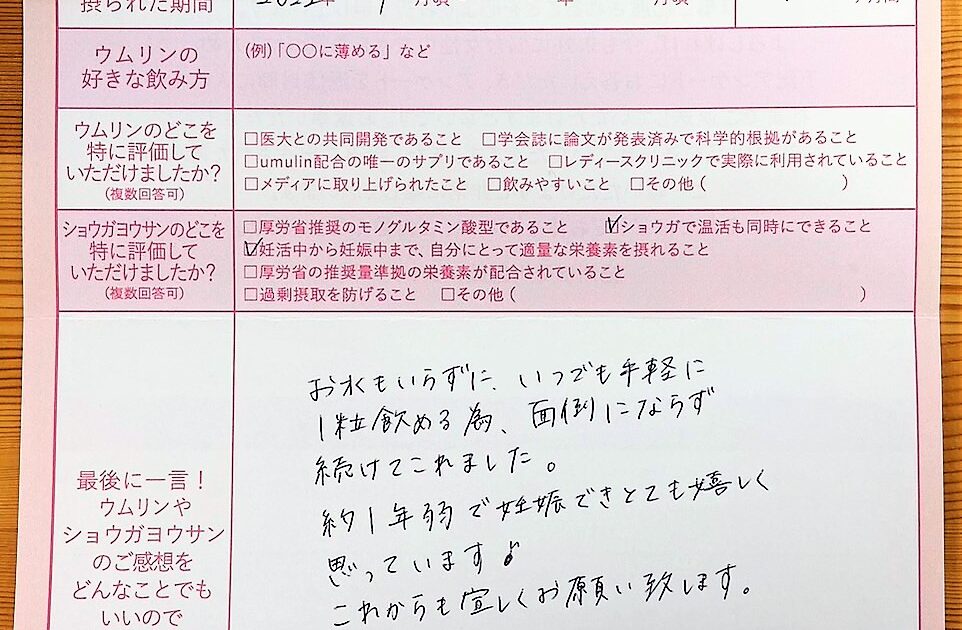 摂られた期間
年 月頃 年 月頃
ウムリンの
好きな飲み方
(例)「〇〇に薄める」など
ウムリンのどこを
特に評価して
いただけましたか?
(複数回答可)
□医大との共同開発であること □学会誌に論文が発表済みで科学的根拠があること
□umulin配合の唯一のサプリであること □レディースクリニックで実際に利用されていること
□メディアに取り上げられたこと □飲みやすいこと □その他( )
ショウガヨウサンのどこを
特に評価して
いただけましたか?
(複数回答可)
□厚労省推奨のモノグルタミン酸型であること ☑ショウガで温活も同時にできること
☑妊活中から妊娠中まで、自分にとって適量な栄養素を摂れること
□厚労省の推奨量準拠の栄養素が配合されていること
□過剰摂取を防げること □その他( )
最後に一言!
ウムリンや
ショウガヨウサン
のご感想を
どんなことでも
いいので
お水もいらずに、いつでも手軽に
1粒飲める為、面倒にならず
続けてこれました。
約1年弱で妊娠できとても嬉しく
思っています♪
これからも宜しくお願い致します。